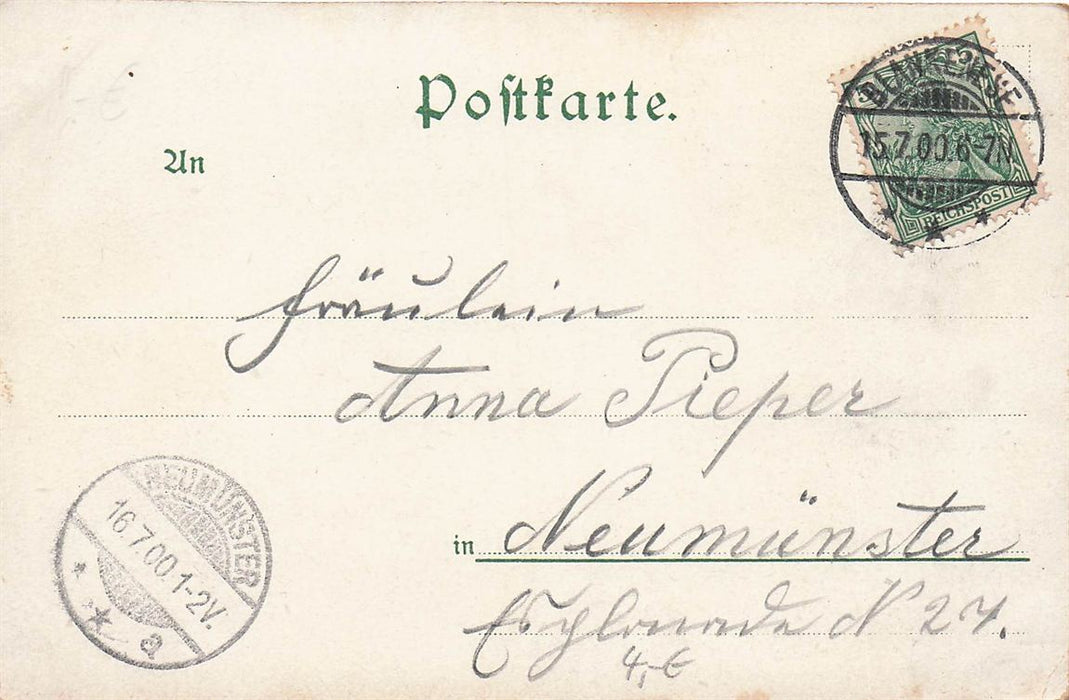 Postkarte.
An
BLANKENESE
15.7.00.6-7N
REICHSPOST
Fräulein
Anna Pieper
in Neumünster
Esplanade N 24.
4,-€
NEUMÜNSTER
16.7.00.1-2V.
a